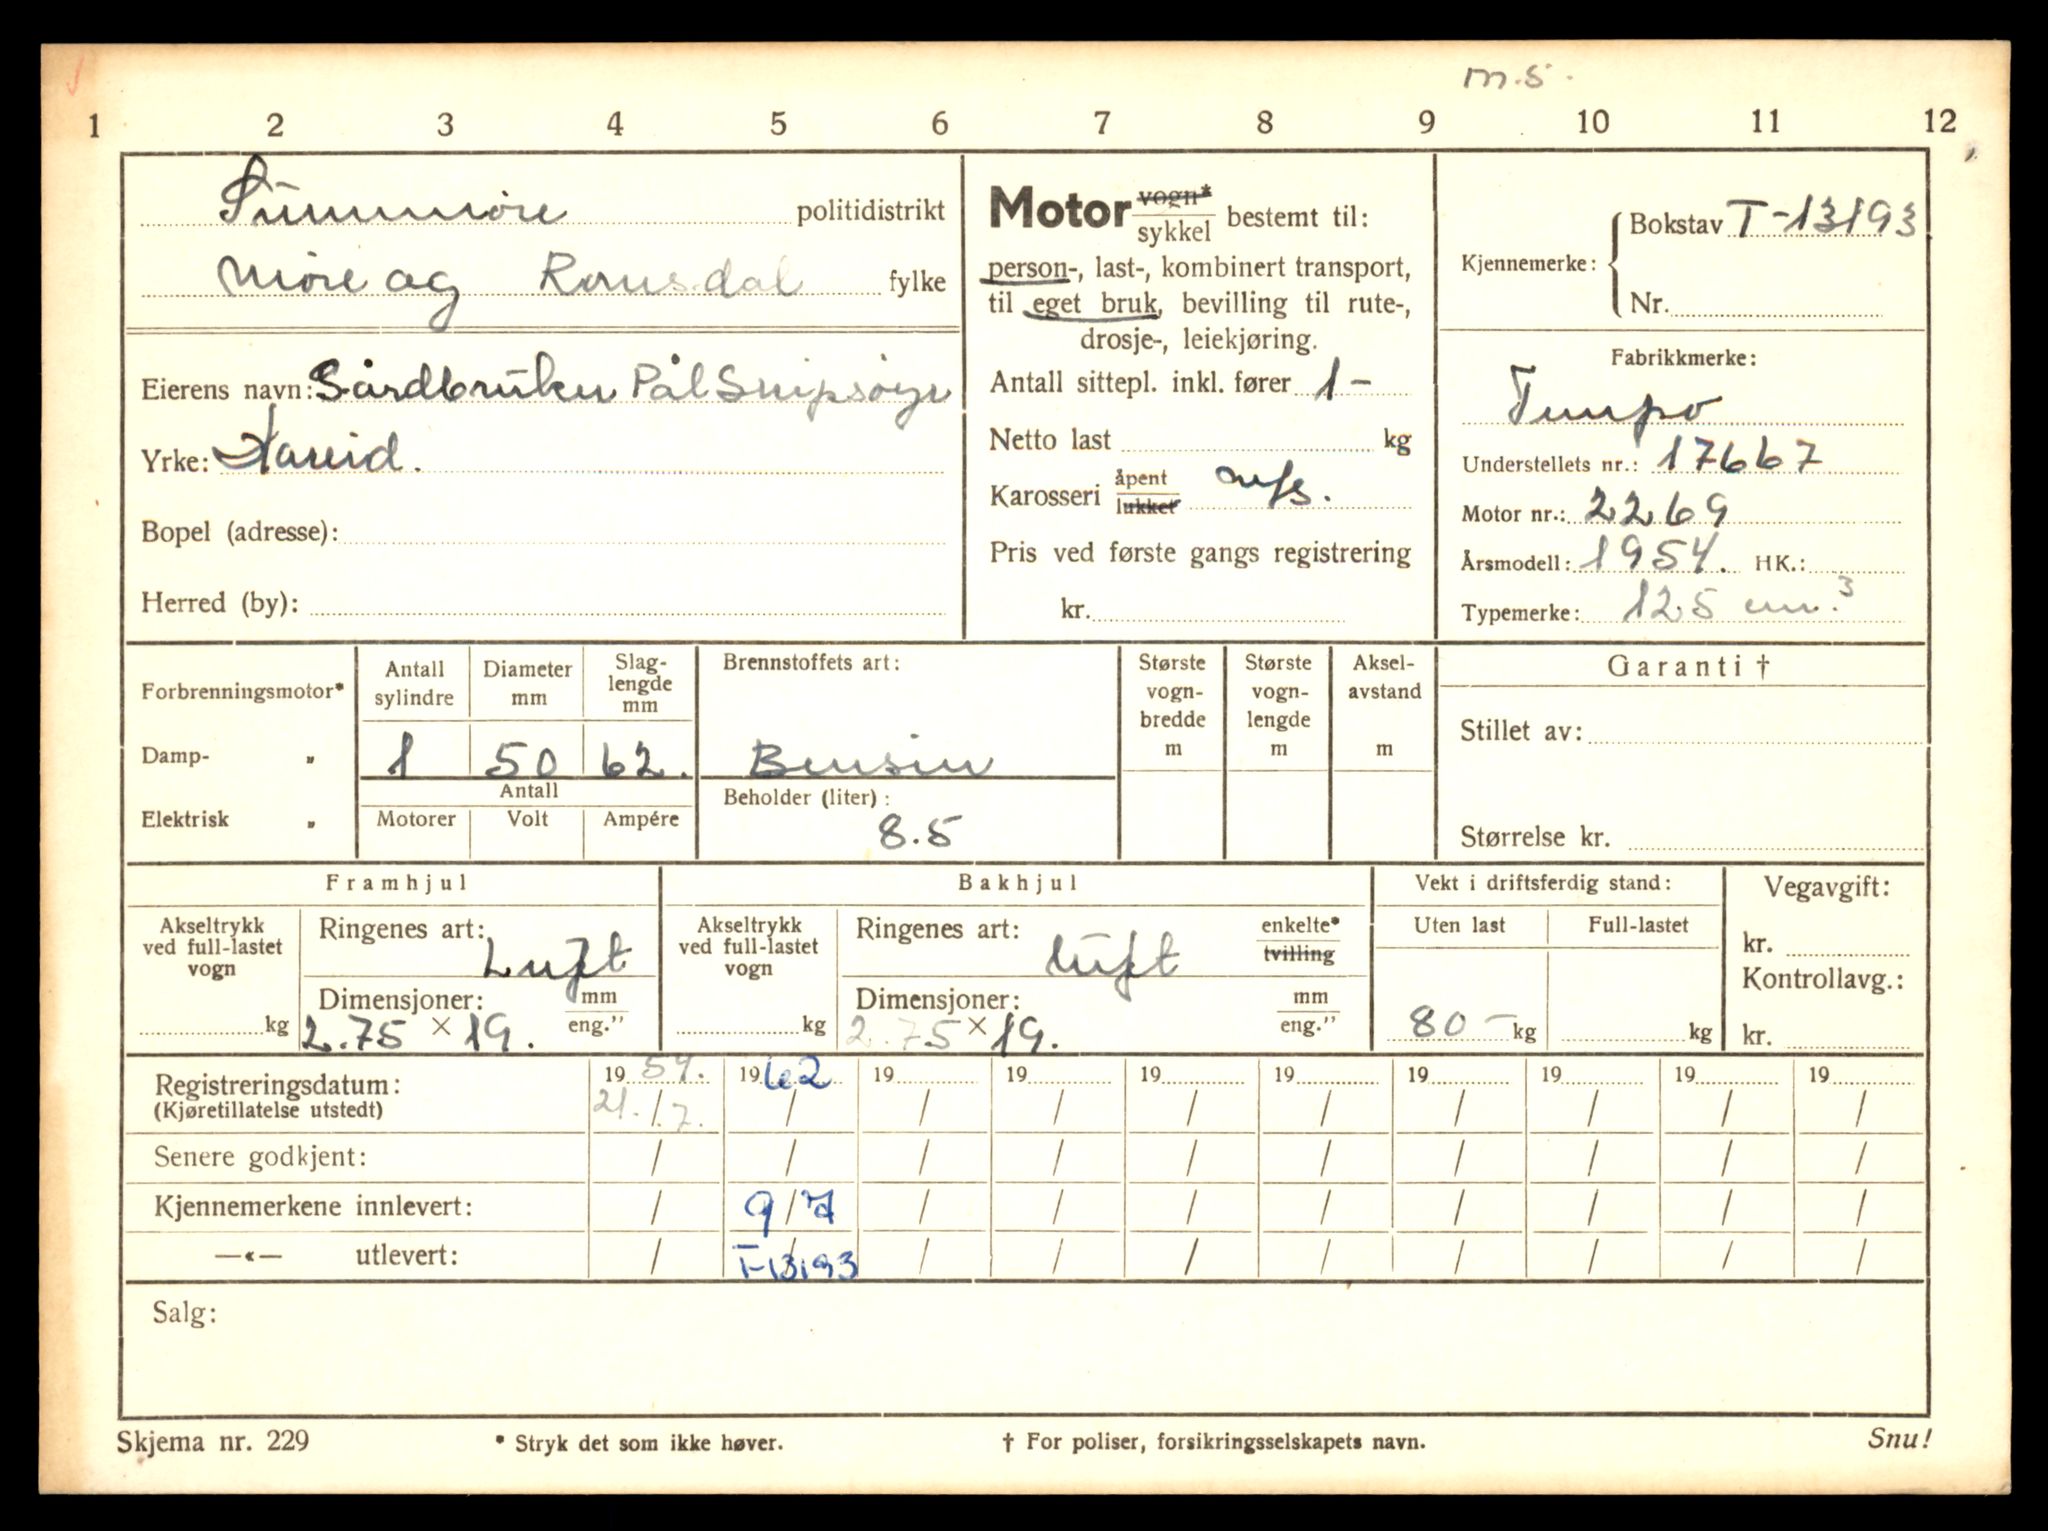 m.s.
1 2 3 4 5 6 7 8 9 10 11 12
Sunnmøre politidistrikt
Møre og Romsdal fylke
Eierens navn: Gårdbruker Pål Snipsøyr
Yrke: Hareid.
Bopel (adresse):
Herred (by):
Motor vogn* / sykkel bestemt til:
person-, last-, kombinert transport,
til eget bruk, bevilling til rute-,
drosje-, leiekjøring.
Antall sittepl. inkl. fører 1-
Netto last kg
Karosseri åpent / lukket
Pris ved første gangs registrering
kr.
Kjennemerke: Bokstav T-13193
Nr.
Fabrikkmerke:
Tempo
Understellets nr.: 17667
Motor nr.: 2269
Årsmodell: 1954. HK.:
Typemerke: 125 cm.3
Forbrenningsmotor*
Damp- „
Elektrisk „
Antall sylindre Diameter mm Slag-lengde mm
1 50 62.
Antall
Motorer Volt Ampére
Brennstoffets art:
Bensin
Beholder (liter):
8.5
Største vogn-bredde m
Største vogn-lengde m
Aksel-avstand m
Garanti †
Stillet av:
Størrelse kr.
Framhjul
Akseltrykk ved full-lastet vogn
kg
Ringenes art: Luft
Dimensjoner: mm / eng.”
2.75 × 19.
Bakhjul
Akseltrykk ved full-lastet vogn
kg
Ringenes art: luft enkelte* / tvilling
Dimensjoner: mm / eng.”
2.75 × 19.
Vekt i driftsferdig stand:
Uten last Full-lastet
80 - kg kg
Vegavgift:
kr.
Kontrollavg.:
kr.
Registreringsdatum: 19 54. 19 62 19 19 19 19 19 19 19 19
(Kjøretillatelse utstedt) 21. / 7. / / / / / / / / /
Senere godkjent: / / / / / / / / / /
Kjennemerkene innlevert: / 9 / 7 / / / / / / / /
—«— utlevert: / T-13193 / / / / / / / /
Salg:
Skjema nr. 229 * Stryk det som ikke høver. † For poliser, forsikringsselskapets navn. Snu!